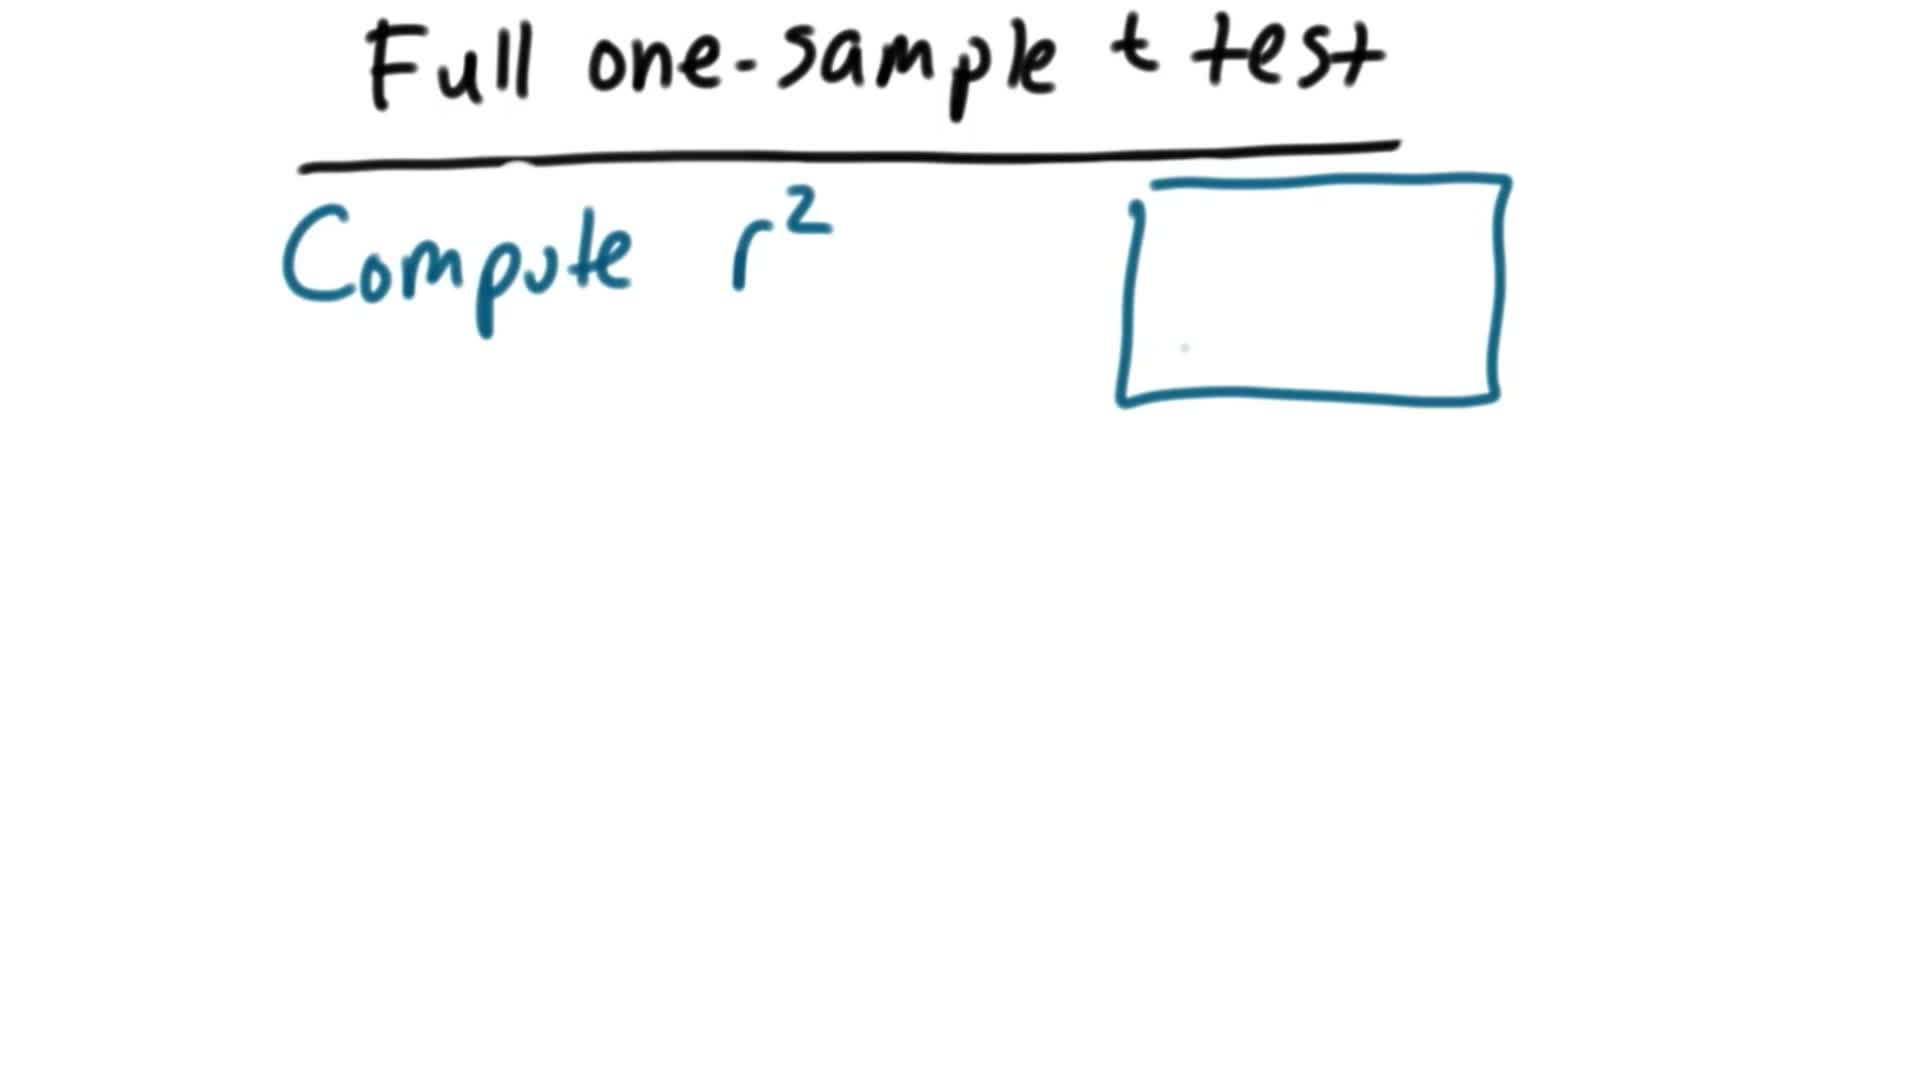 Full one-sample t test
Compute r²